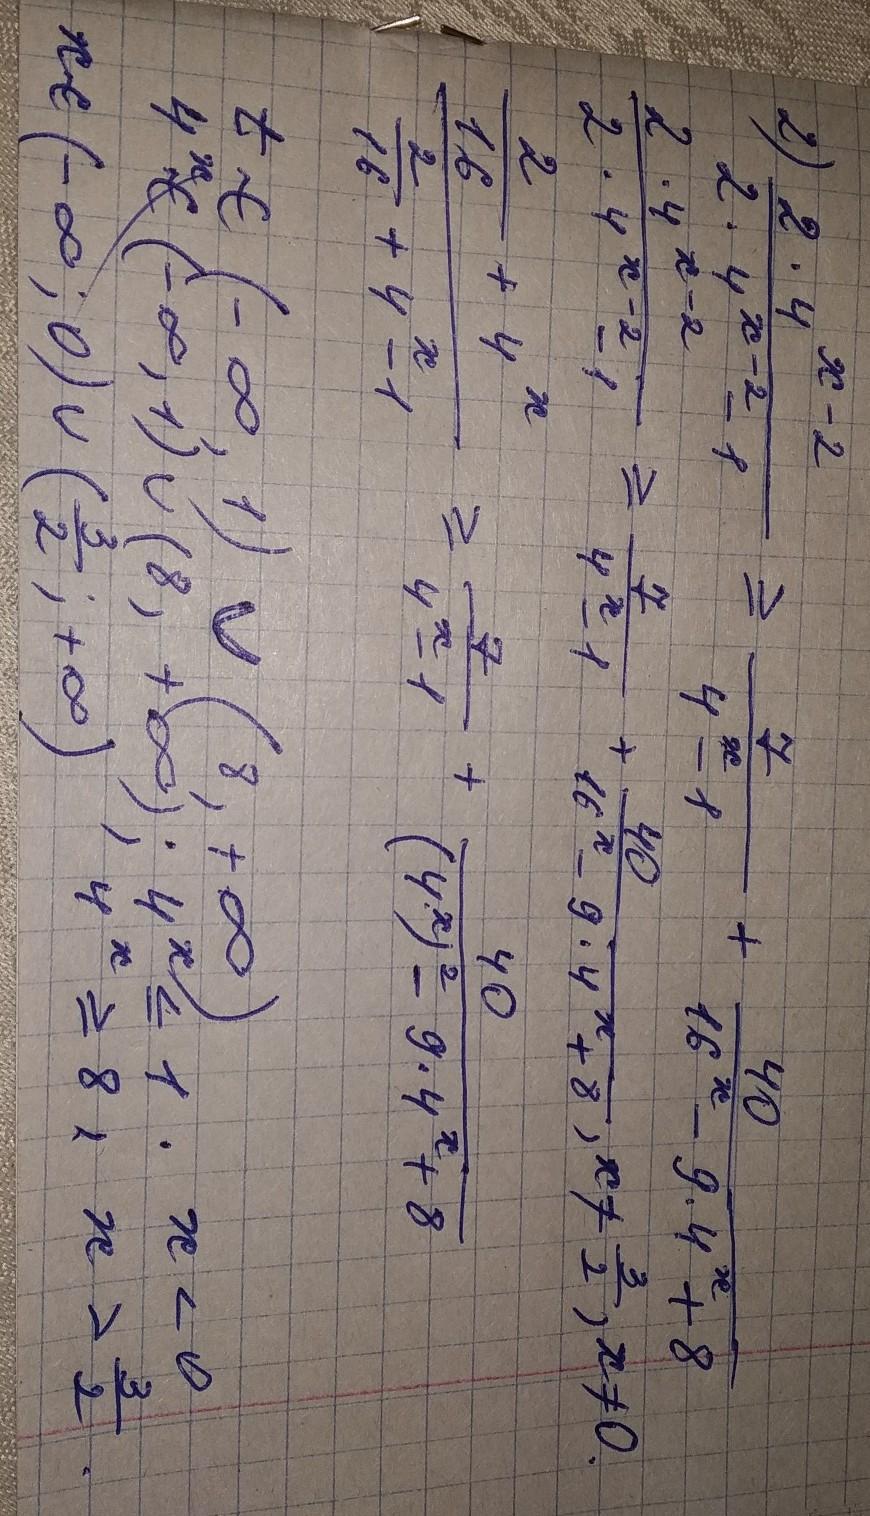 2) \frac{2 \cdot 4^{x-2}}{2 \cdot 4^{x-2} - 1} ≥ \frac{7}{4^x - 1} + \frac{40}{16^x - 9 \cdot 4^x + 8}
\frac{2 \cdot 4^{x-2}}{2 \cdot 4^{x-2} - 1} ≥ \frac{7}{4^x - 1} + \frac{40}{16^x - 9 \cdot 4^x + 8}, x ≠ \frac{3}{2}, x ≠ 0.
\frac{\frac{2}{16} + 4^x}{\frac{2}{16} + 4^x - 1} ≥ \frac{7}{4^x - 1} + \frac{40}{(4^x)^2 - 9 \cdot 4^x + 8}
t ∈ (-∞, 1) ∪ (8, +∞)
4^x ∈ (-∞, 1) ∪ (8, +∞); 4^x ≤ 1. x < 0
x ∈ (-∞; 0) ∪ (\frac{3}{2}; +∞), 4^x ≥ 8, x > \frac{3}{2}.